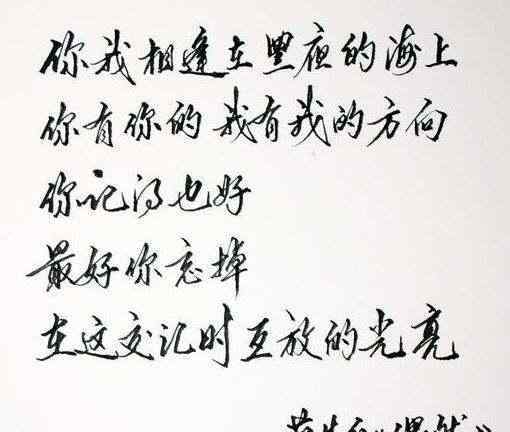 你我相逢在黑夜的海上
你有你的 我有我的方向
你记得也好
最好你忘掉
在这交汇时互放的光亮
《偶然》